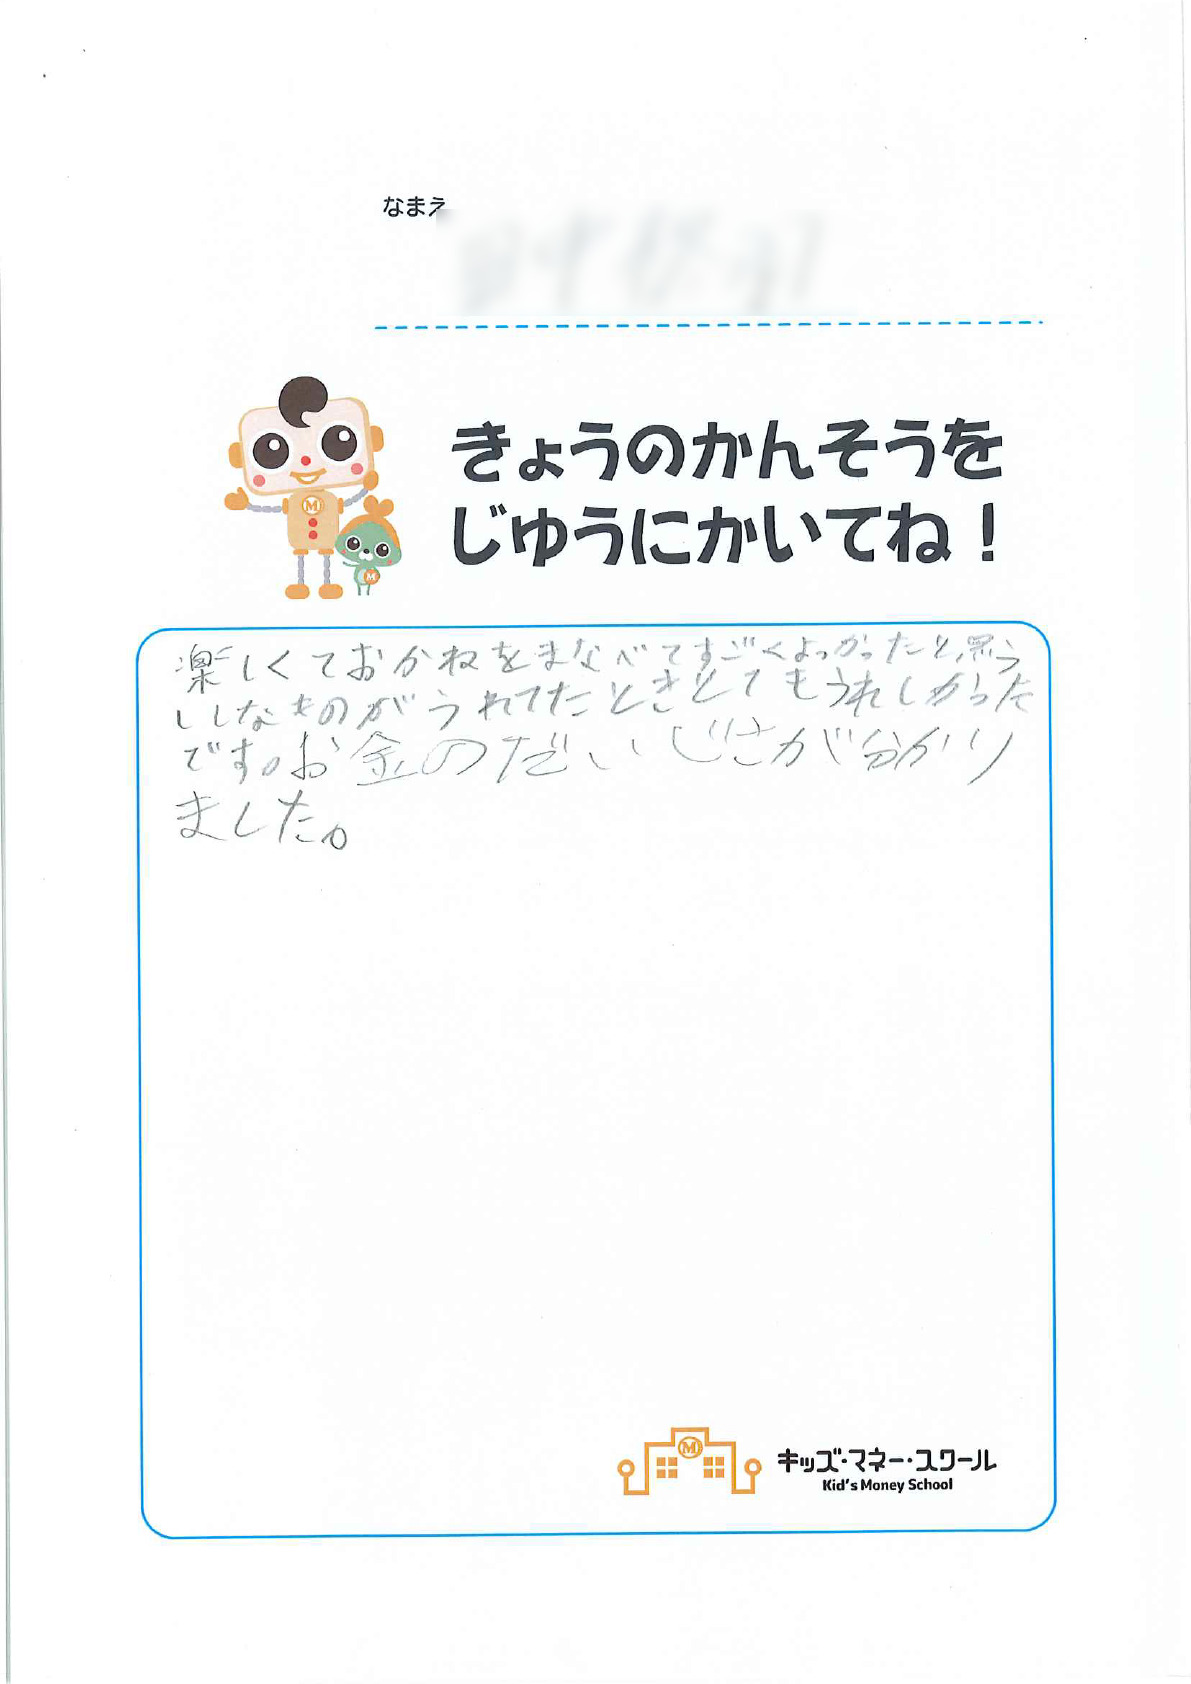 なまえ
きょうのかんそうを
じゆうにかいてね！
楽しくておかねをまなべてすごくよっかったと思う
しなものがうれてたときとてもうれしかった
です。お金のだいじさが分かり
ました。
M
キッズ・マネー・スクール
Kid's Money School